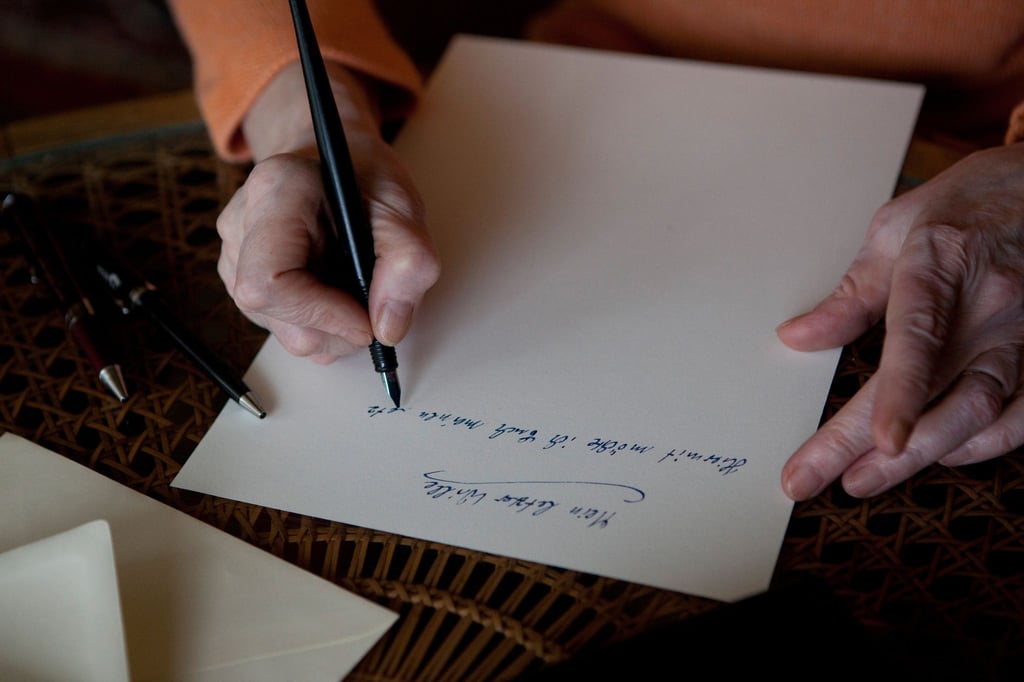 Mein letzter Wille
Hiermit möchte ich Euch meinen letz